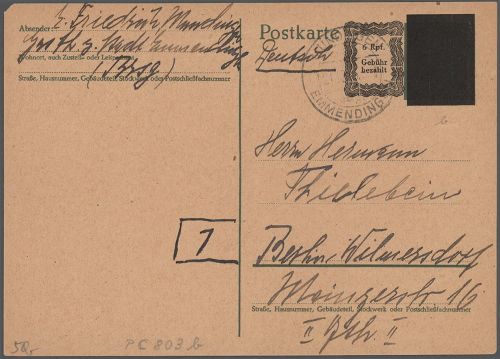 Absender: z. Friedrich
Gasth. z. Stadt Emmendingen
Wohnort, auch Zustell- oder Leitpostamt
(Brsg)
Straße, Hausnummer, Gebäudeteil, Stockwerk oder Postschließfachnummer
Postkarte
Deutsch
6 Rpf.
Gebühr
bezahlt
EMMENDINGEN
b
Herrn Hermann
Thielebein
Berlin Wilmersdorf
Mainzerstr. 16
Straße, Hausnummer, Gebäudeteil, Stockwerk oder Postschließfachnummer
II Gth. II
1
50,-
PC 803 b